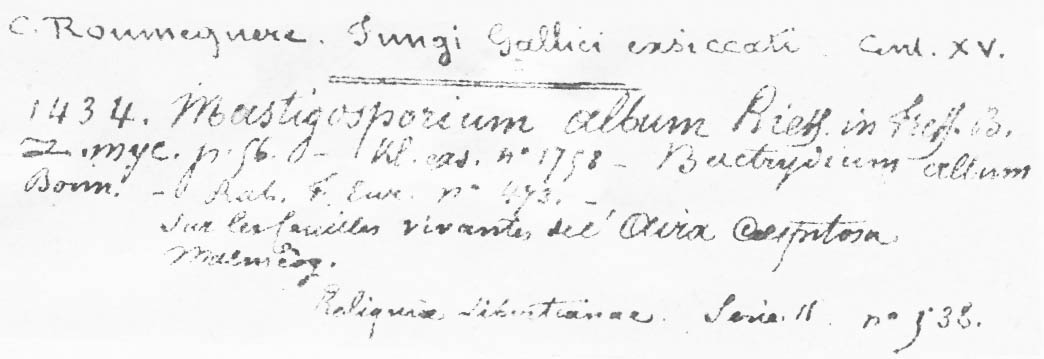 C. Roumeguere. Fungi Gallici exsiccati. Cent. XV.
1434. Mastigosporium album Riess. in Fres. B.
Z. myc. p. 56. – Kl. exs. nº 1758 – Bactrydium album
Bonn. – Rab. F. eur. nº 473. –
Sur les feuilles vivantes de l' Aira Cespitosa
Malmédy.
Reliquiæ Libertianae. Serie. II nº 538.